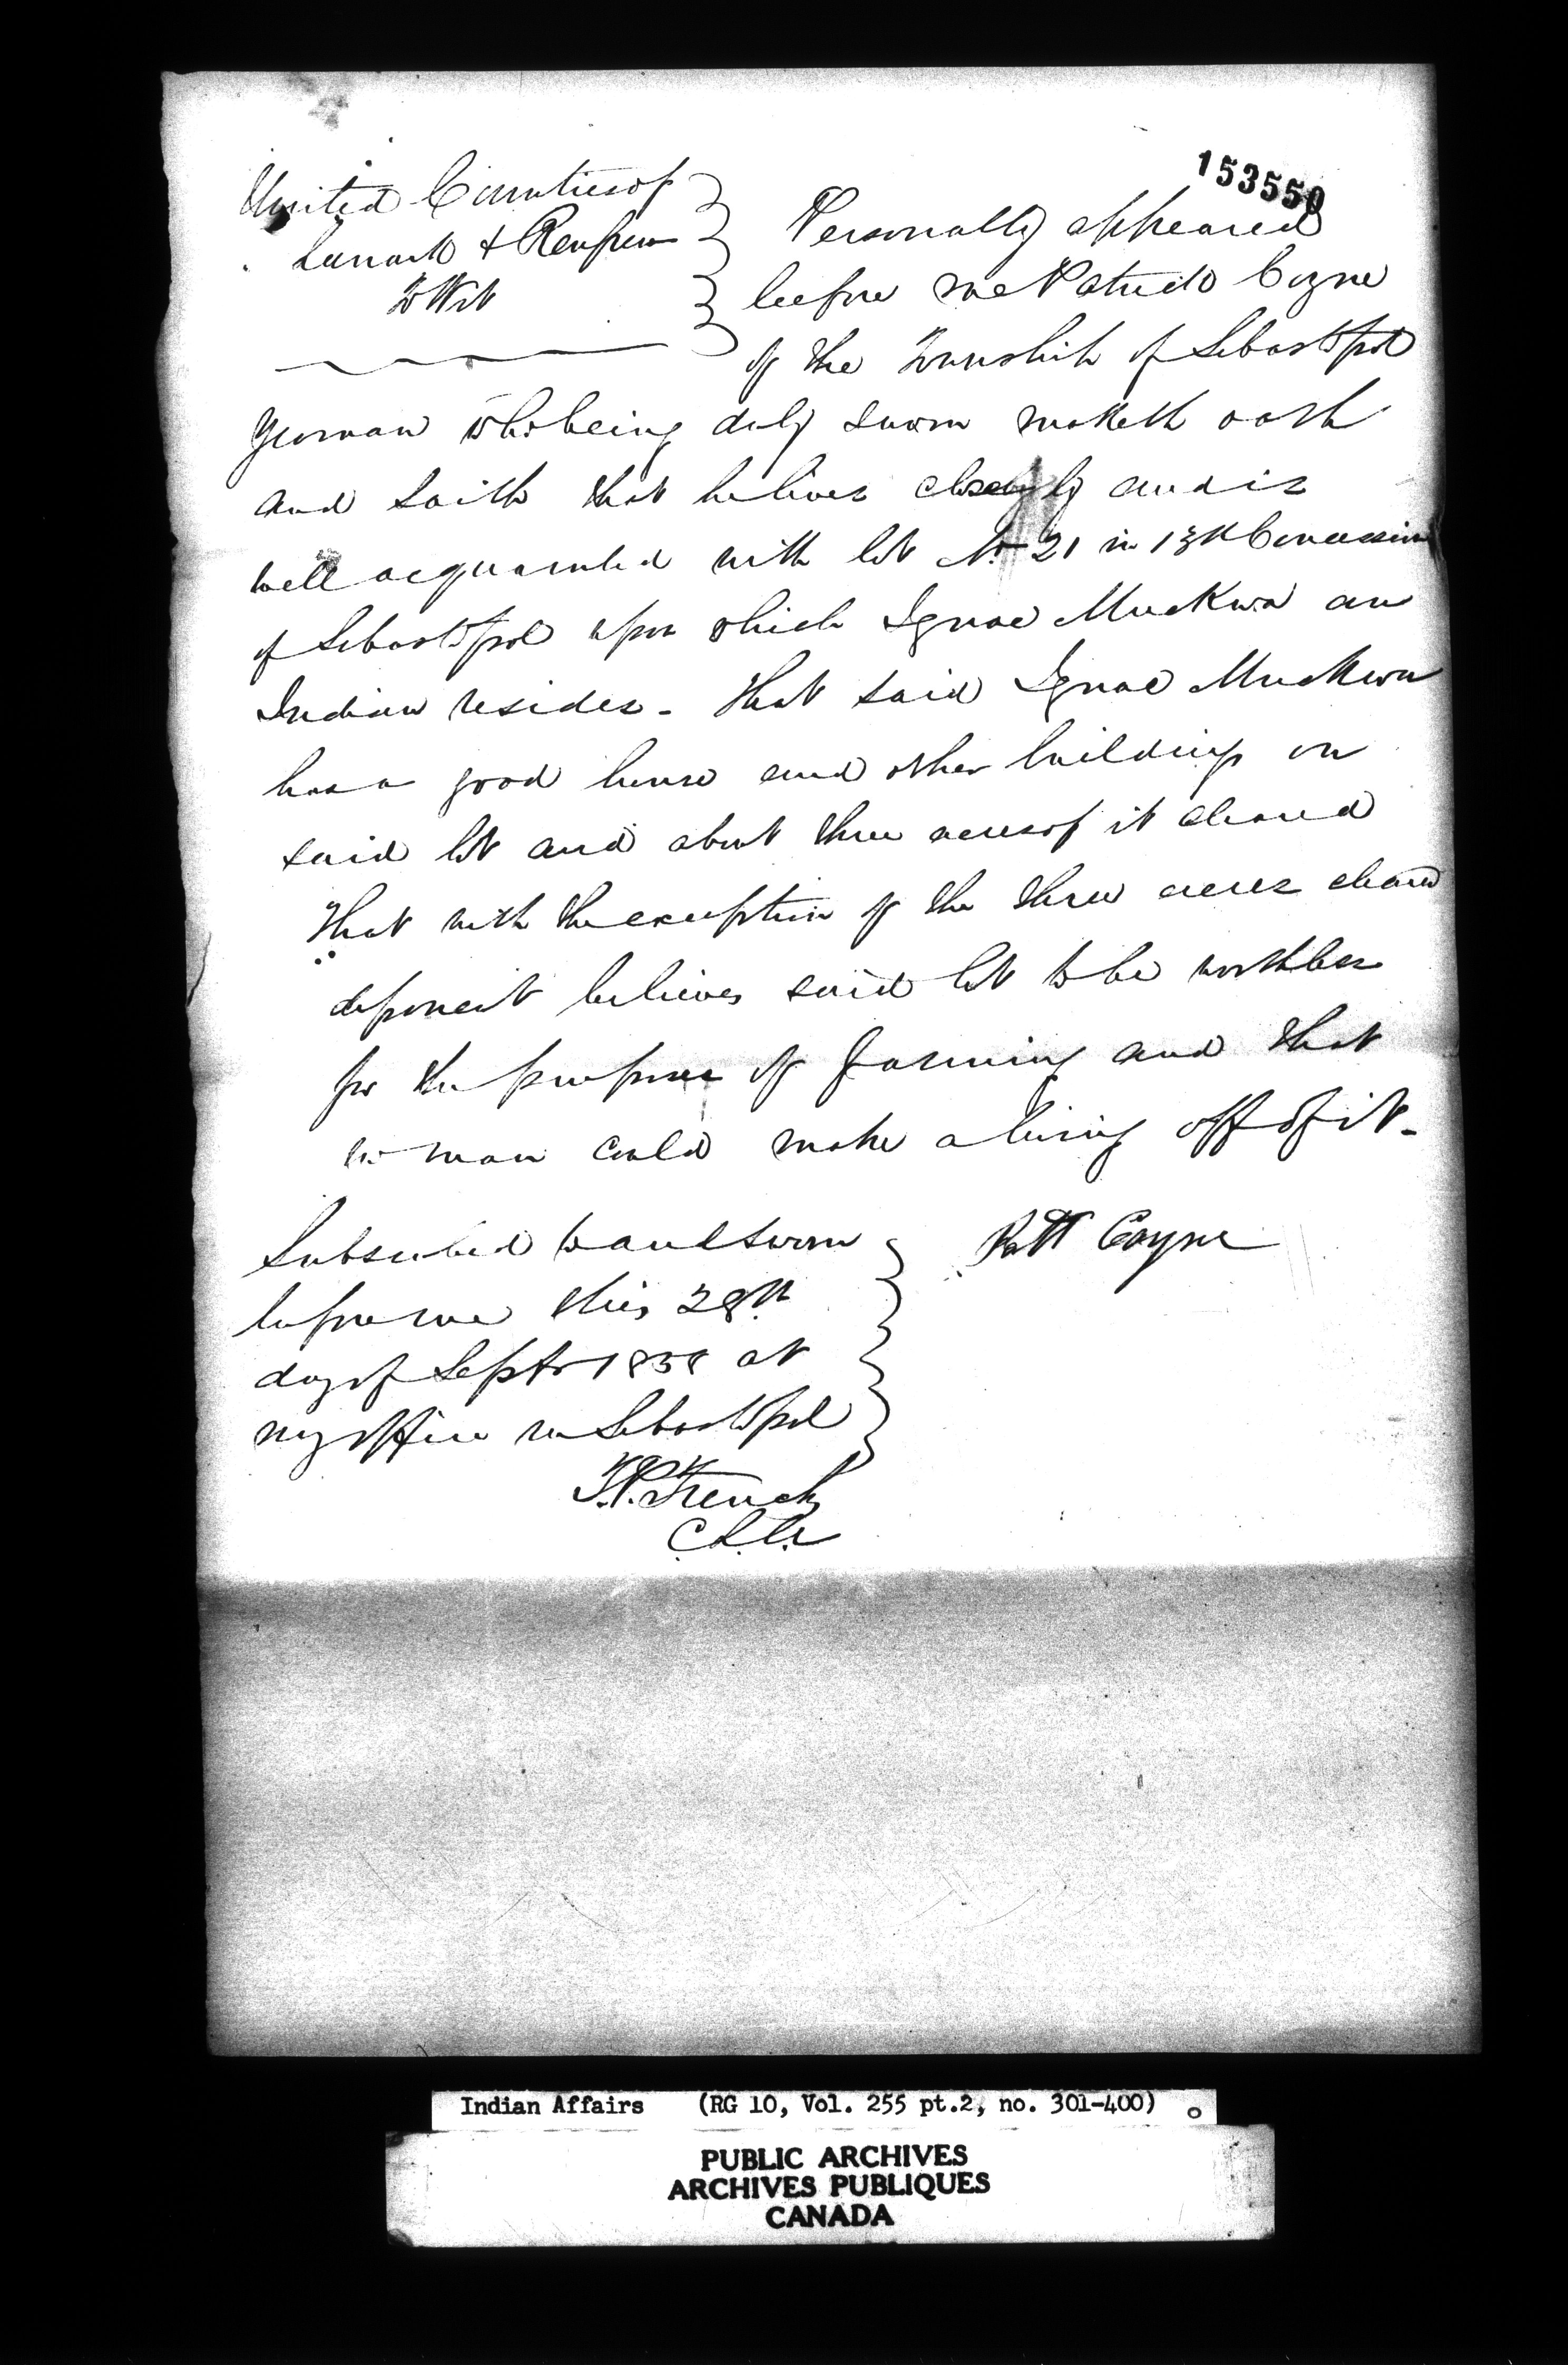 153550
United Counties of
Lanark & Renfrew
To Wit
Personally appeared
before me Patrick Coyne
of the Township of Sebastopol
Yeoman who being duly sworn maketh oath
and saith that he lives closely by and is
well acquainted with lot No 21 in 13th Concession
of Sebastopol upon which Ignac Muckwa an
Indian resides - that said Ignac Muckwa
has a good house and other buildings on
said lot and about three acres of it cleared
That with the exception of the three acres cleared
deponent believes said lot to be worthless
for the purposes of farming and that
no man could make a living off of it -
Subscribed to and sworn
before me this 28th
day of Septr 1858 at
my office in Sebastopol
Patt Coyne
T.P. French
C.L.A.
Indian Affairs (RG 10, Vol. 255 pt.2, no. 301-400)
PUBLIC ARCHIVES
ARCHIVES PUBLIQUES
CANADA